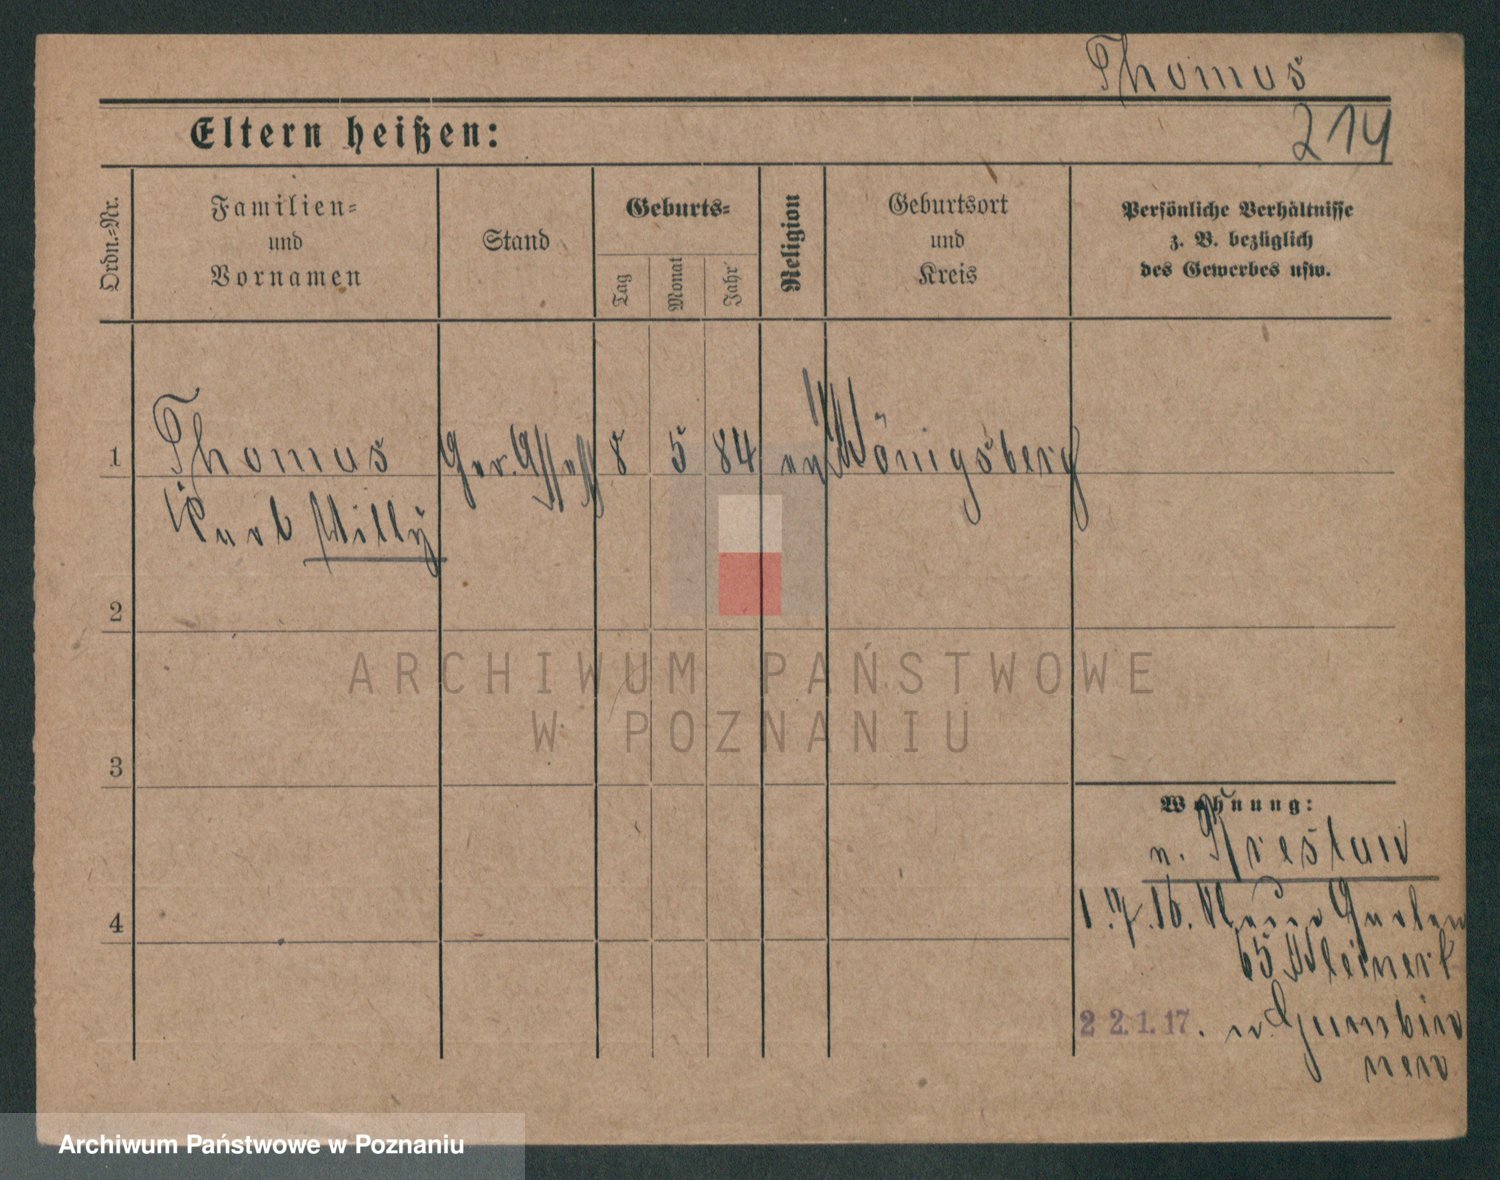 Thomas
214
Eltern heißen:
Ordn.=Nr.
Familien=
und
Vornamen
Stand
Geburts=
Tag
Monat
Jahr
Religion
Geburtsort
und
Kreis
Persönliche Verhältnisse
z. B. bezüglich
des Gewerbes usw.
1
Thomas
Ger. Assess
8
5
84
ev
Königsberg
Willy
2
ARCHIWUM PAŃSTWOWE
W POZNANIU
3
Wohnung:
n. Breslau
1.7.16. Neue Garten
65
4
22.1.17. n. Gumbin
nen
Archiwum Państwowe w Poznaniu